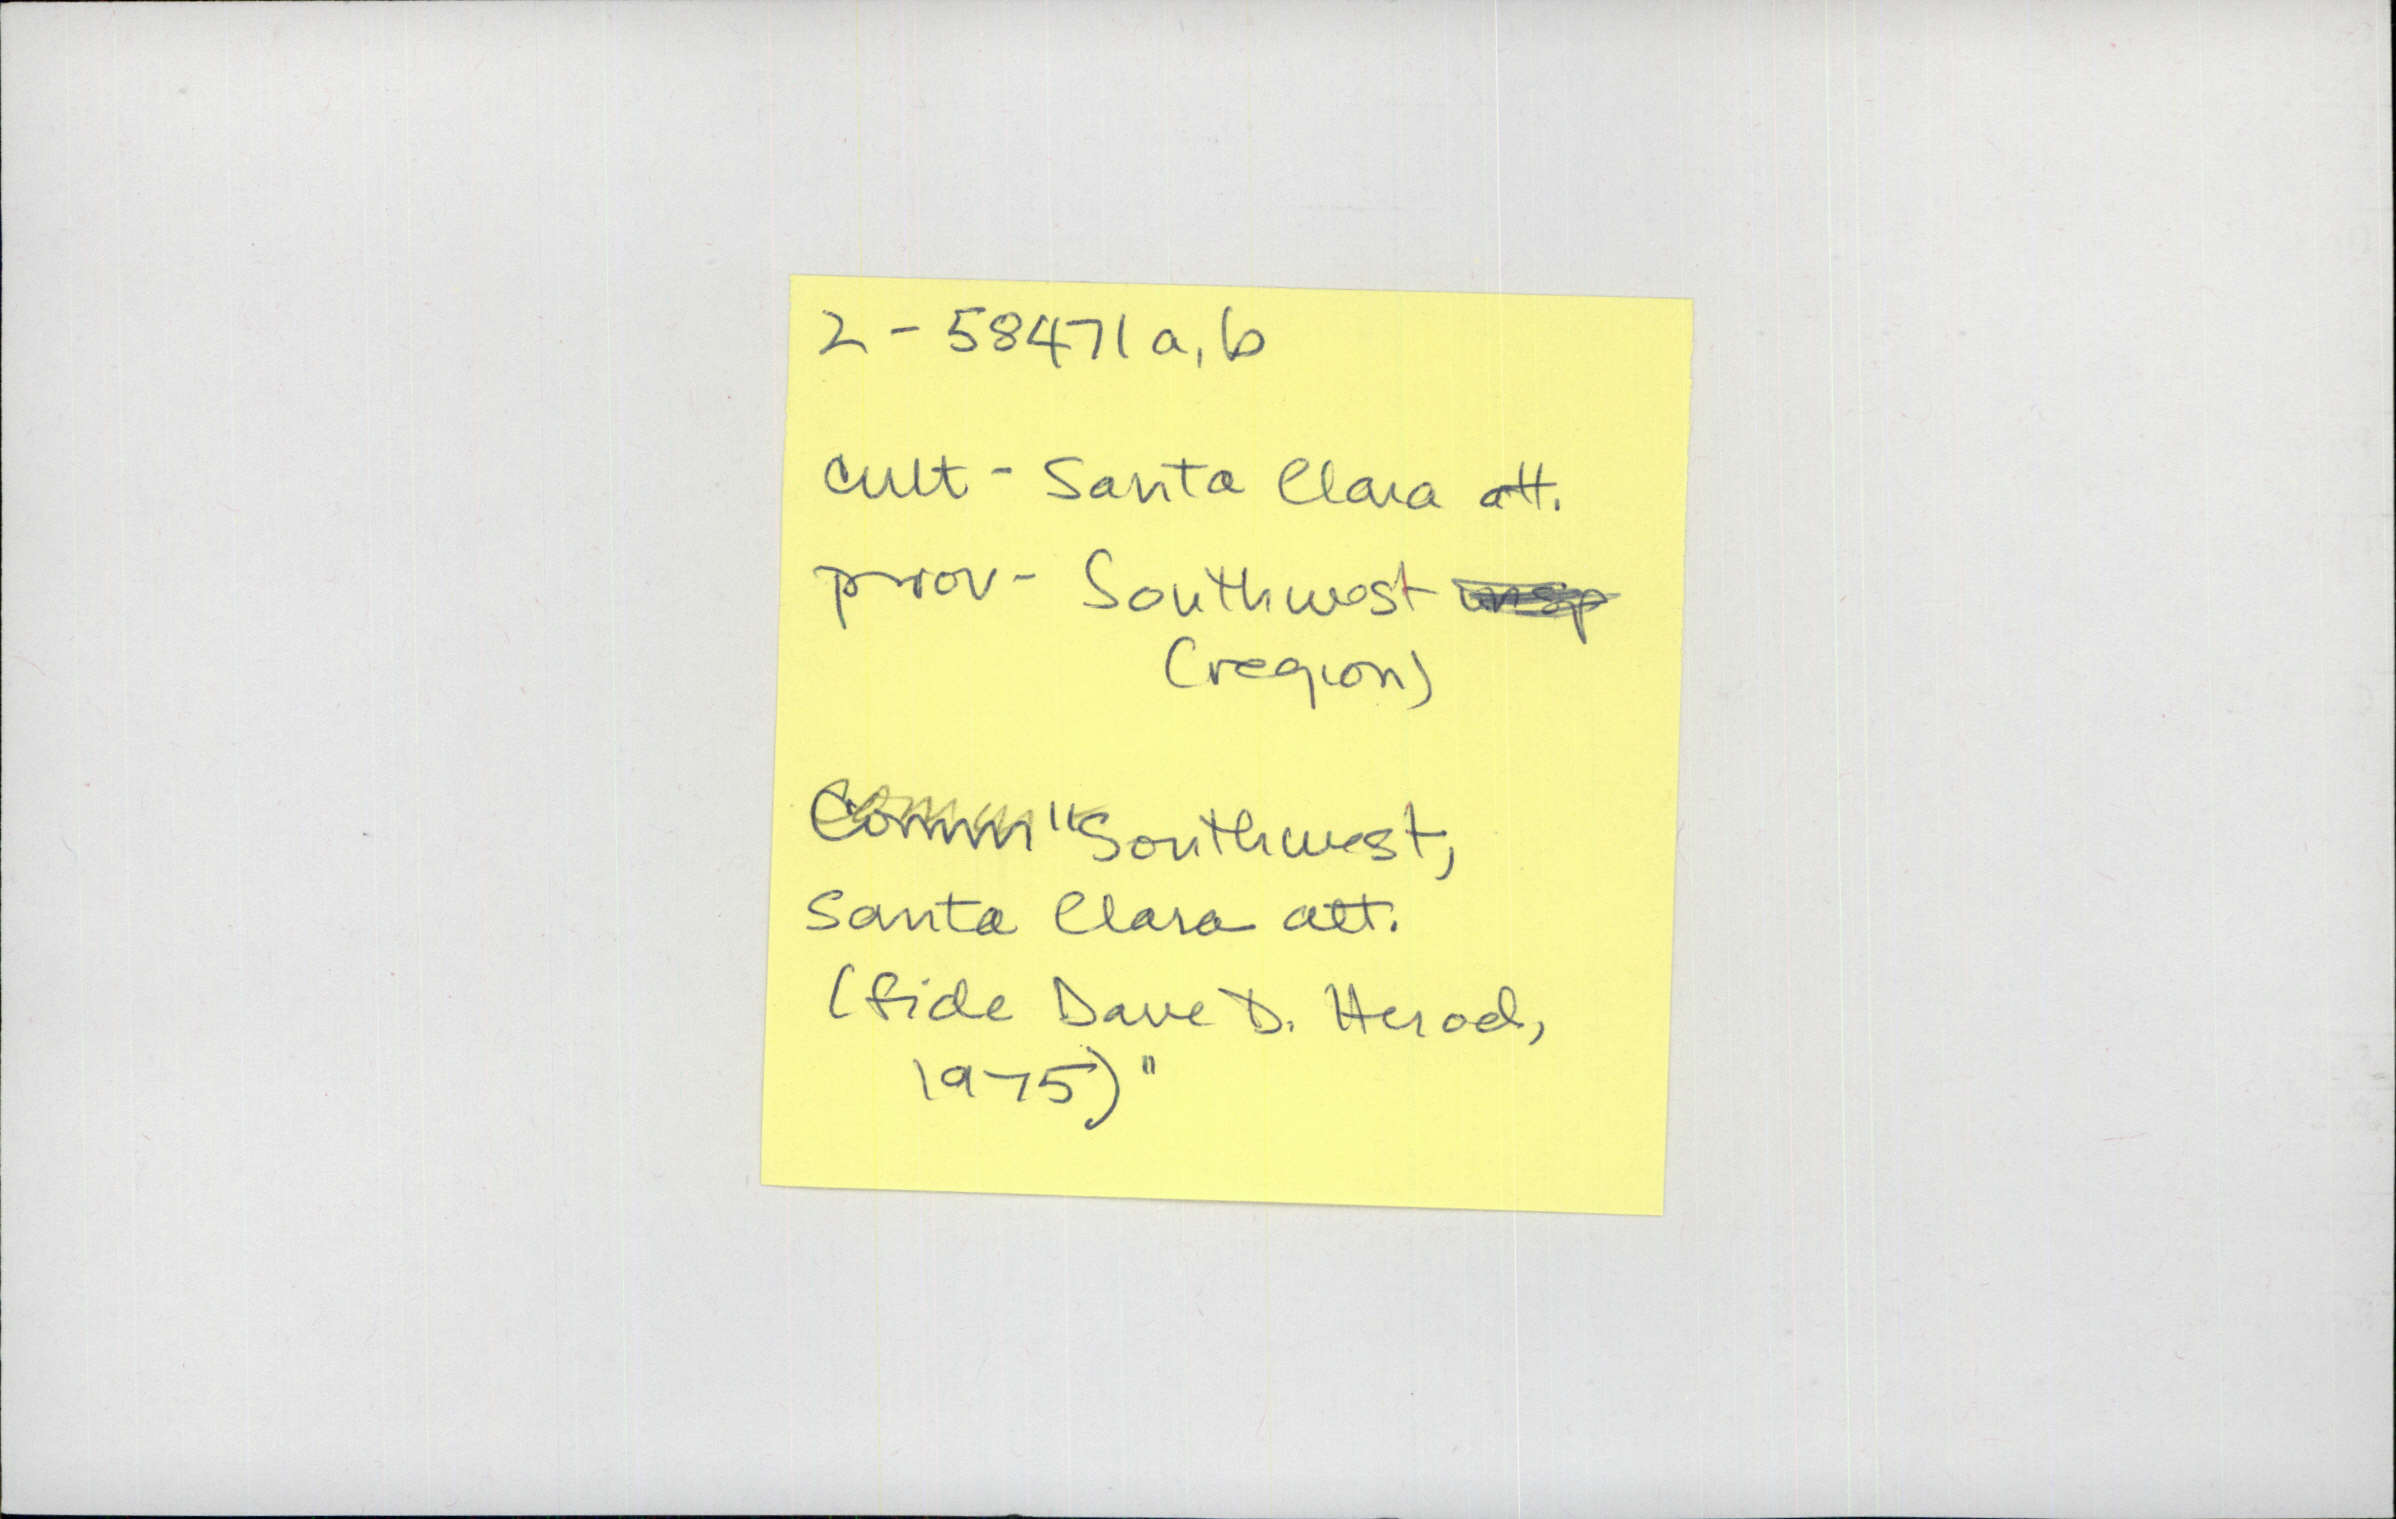 2-58471a,b
cult - Santa Clara att.
prov - Southwest
(region)
Comm "Southwest,
Santa Clara att.
(fide Dave D. Herod,
1975)"